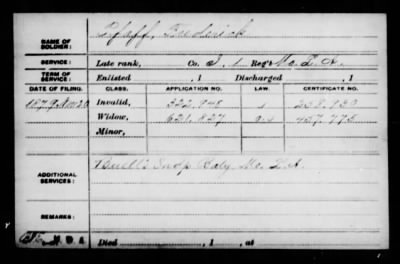 NAME OF SOLDIER: Pfaff, Frederick
SERVICE: Late rank, Co. I, 1 Reg't Mo. L. A.
TERM OF SERVICE: Enlisted , 1 Discharged , 1
DATE OF FILING. CLASS. APPLICATION NO. LAW. CERTIFICATE NO.
1879 Nov 20 Invalid, 322.948 258.930
Widow, 621.827 457.775
Minor,
ADDITIONAL SERVICES: Buell's Indp Baty Mo. L. A.
REMARKS:
Died , 1 , at